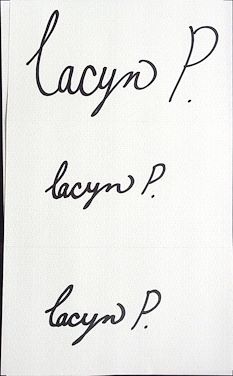 Lacyn P.
Lacyn P.
Lacyn P.